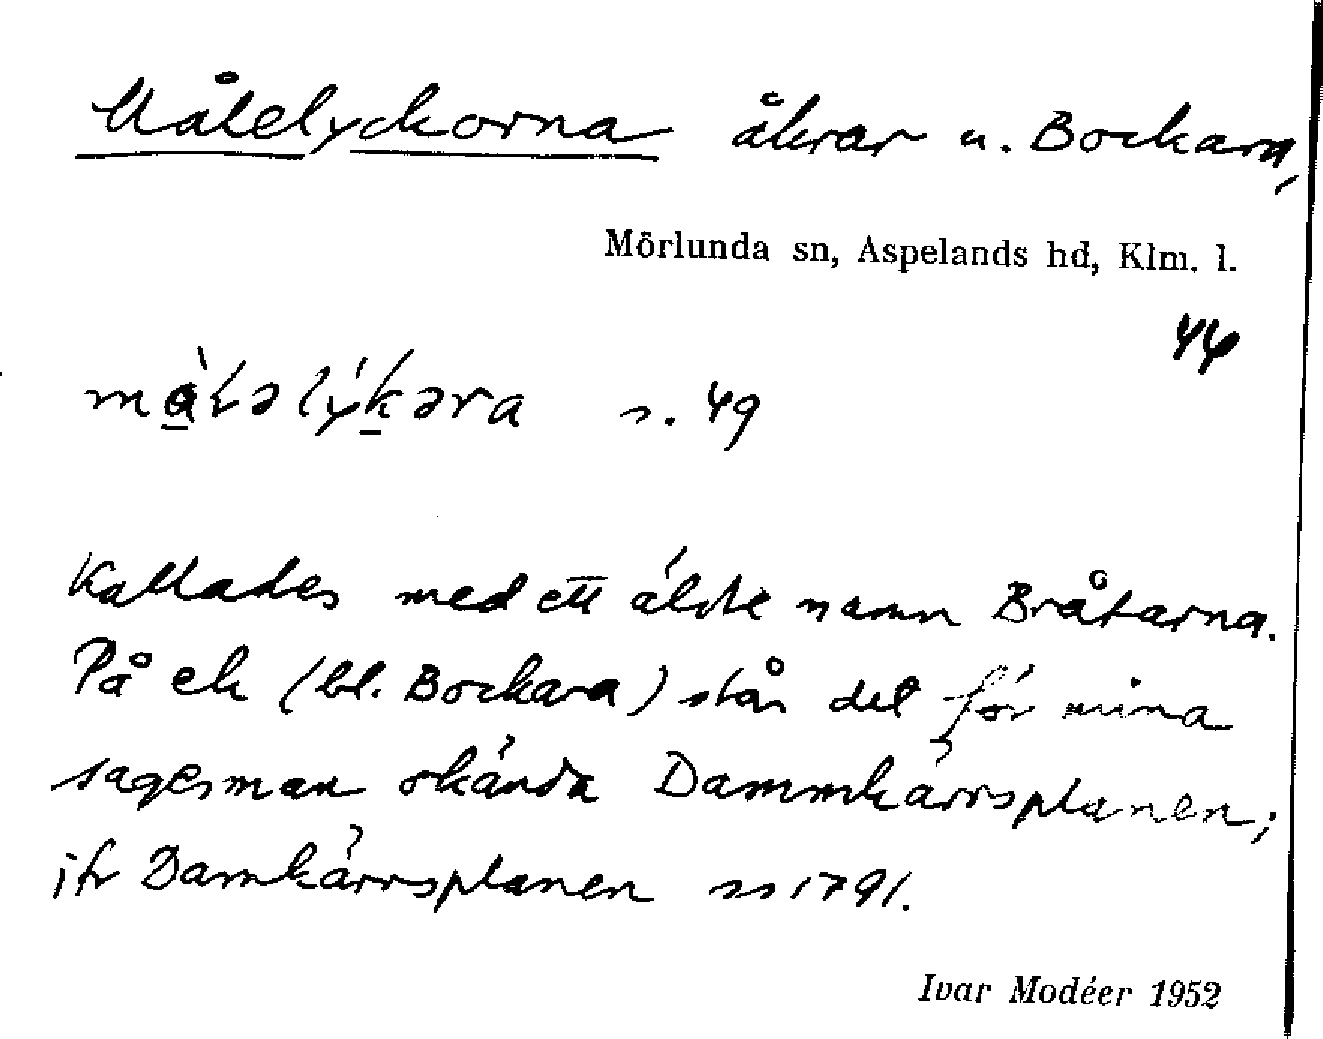 Måtelyckorna åkrar u. Bockara,
Mörlunda sn, Aspelands hd, Klm. l.
44
må̀təlýkəra s. 49
Kallades med ett äldre namn Bråtarna.
På ek (bl. Bockara) står det för mina
sagesmän okända Dammkärrsplanen;
jfr Damkärrsplanen ss 1791.
Ivar Modéer 1952